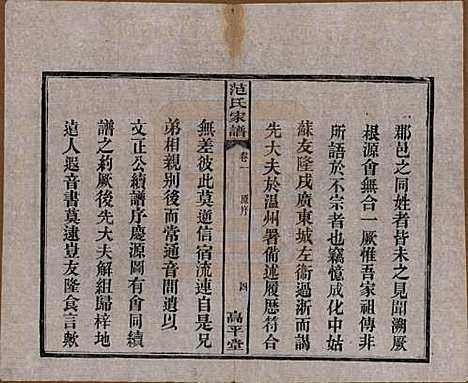 郡邑之同姓者皆未之見聞溯厥
根源會無合一厥惟吾家祖傳非
所語於不宗者也竊憶成化中姑
蘇友隆戍廣東城左衛過浙而謁
先大夫於溫州署備述履歷符合
范氏家譜 卷一 原序 四 高平堂
無差彼此莫通信宿流連自是兄
弟相親別後而常通音間遺以
文正公續譜序慶源圖有會同續
譜之約厥後先大夫解組歸梓地
遠人遐音書莫逮豈友隆食言歟